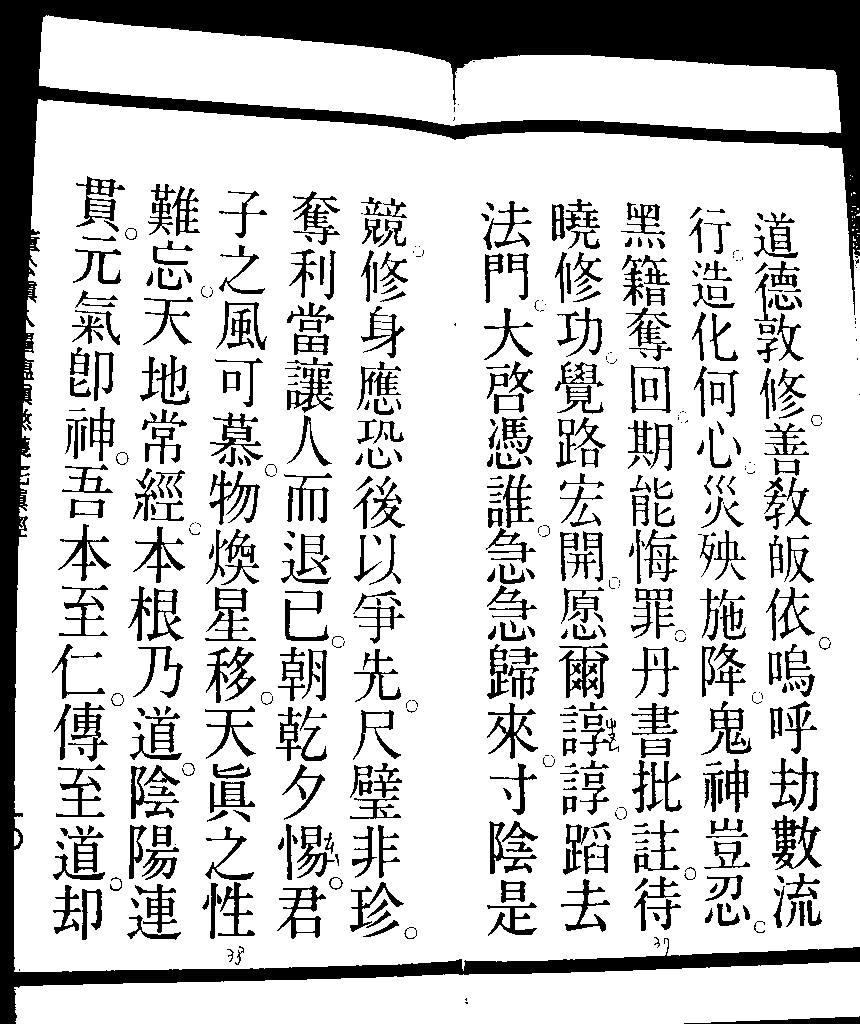 道德敦修。善教皈依。嗚呼劫數流
行。造化何心。災殃施降。鬼神豈忍。
黑籍奪回。期能悔罪。丹書批註。待
曉修功。覺路宏開。愿爾諄諄。蹈去
法門。大啓憑誰。急急歸來。寸陰是
37
競。修身應恐後以爭先。尺璧非珍。
奪利當讓人而退已。朝乾夕惕。君
子之風可慕。物煥星移。天眞之性
難忘。天地常經。本根乃道。陰陽連
貫。元氣卽神。吾本至仁。傳至道。却
38